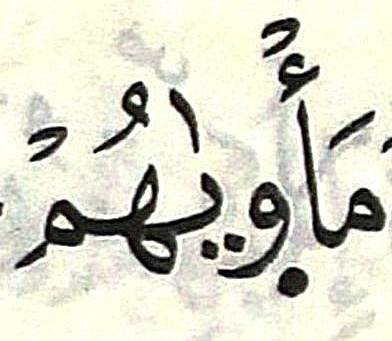 مَأْوٜيٰهُمْ